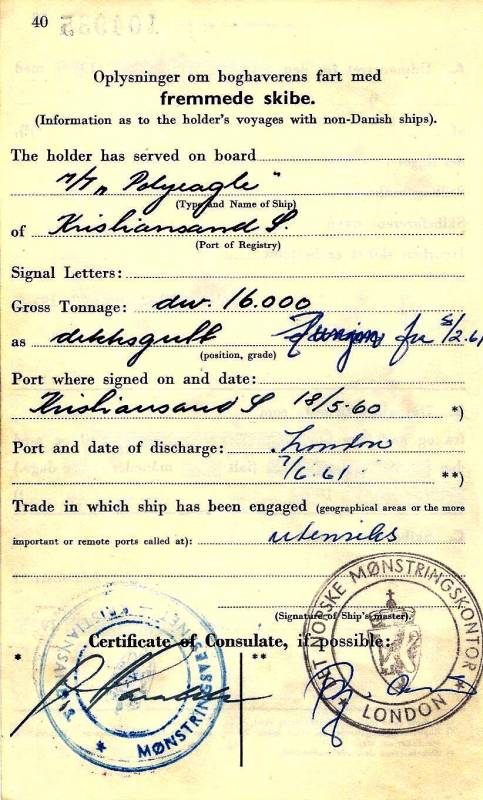 40
Oplysninger om boghaverens fart med
fremmede skibe.
(Information as to the holder's voyages with non-Danish ships).
The holder has served on board
M/T „Polyeagle"
(Type and Name of Ship)
of Kristiansand S.
(Port of Registry)
Signal Letters:
Gross Tonnage: dw. 16.000
as dekksgutt
(position, grade)
Port where signed on and date:
Kristiansand S 18/5-60 *)
Port and date of discharge: London
7/6.61 **)
Trade in which ship has been engaged (geographical areas or the more
important or remote ports called at): utenriks
(Signature of Ship's master).
Certificate of Consulate, if possible:
* **
MØNSTRINGSVESENET
DET NORSKE MØNSTRINGSKONTOR
* LONDON *